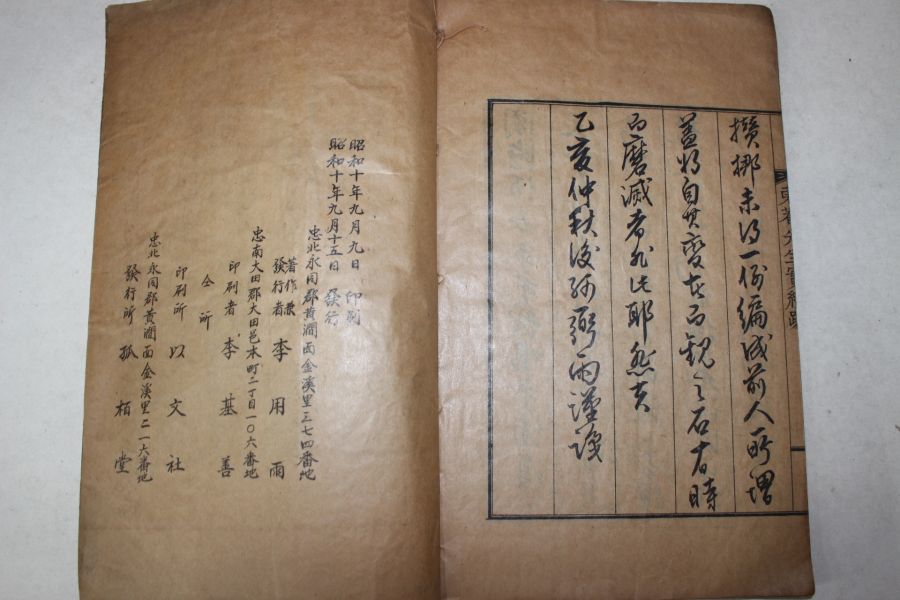 攢挪未得一例編成前人所增
蓋將自其變者而觀之石有時
而磨滅者非此耶然矣
乙亥仲秋後孫 雨謹識
先生實紀跋
昭和十年九月九日 印刷
昭和十年九月十五日 發行
忠北永同郡黃澗面金溪里三七四番地
著作兼
發行者 李用雨
忠南大田郡大田邑本町二丁目一〇六番地
印刷者 李基善
仝所
印刷所 以文社
忠北永同郡黃澗面金溪里二一六番地
發行所 孤栢堂